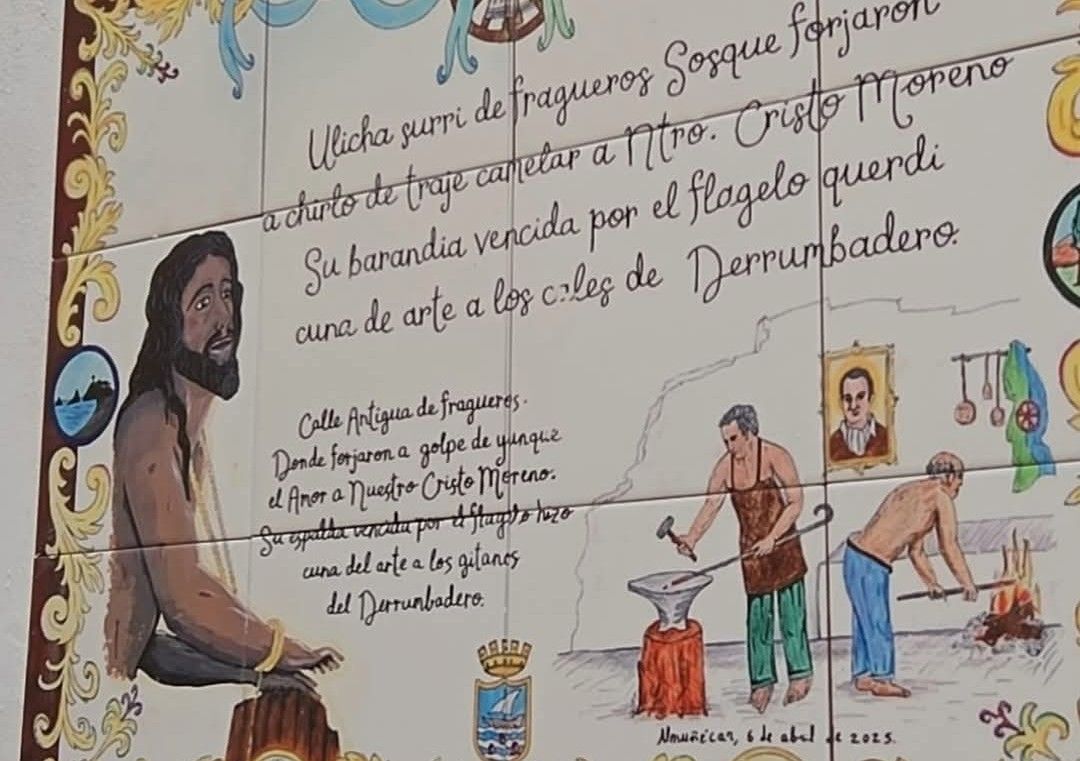 Ulicha surri de fragueros Sosque forjaron
a chirlo de traje camelar a Ntro. Cristo Moreno
Su barandia vencida por el flagelo querdi
cuna de arte a los cales de Derrumbadero.
Calle Antigua de fragueros.
Donde forjaron a golpe de yunque
el Amor a Nuestro Cristo Moreno.
Su espalda vencida por el flagelo hizo
cuna del arte a los gitanos
del Derrumbadero.
Almuñécar, 6 de abril de 2025.